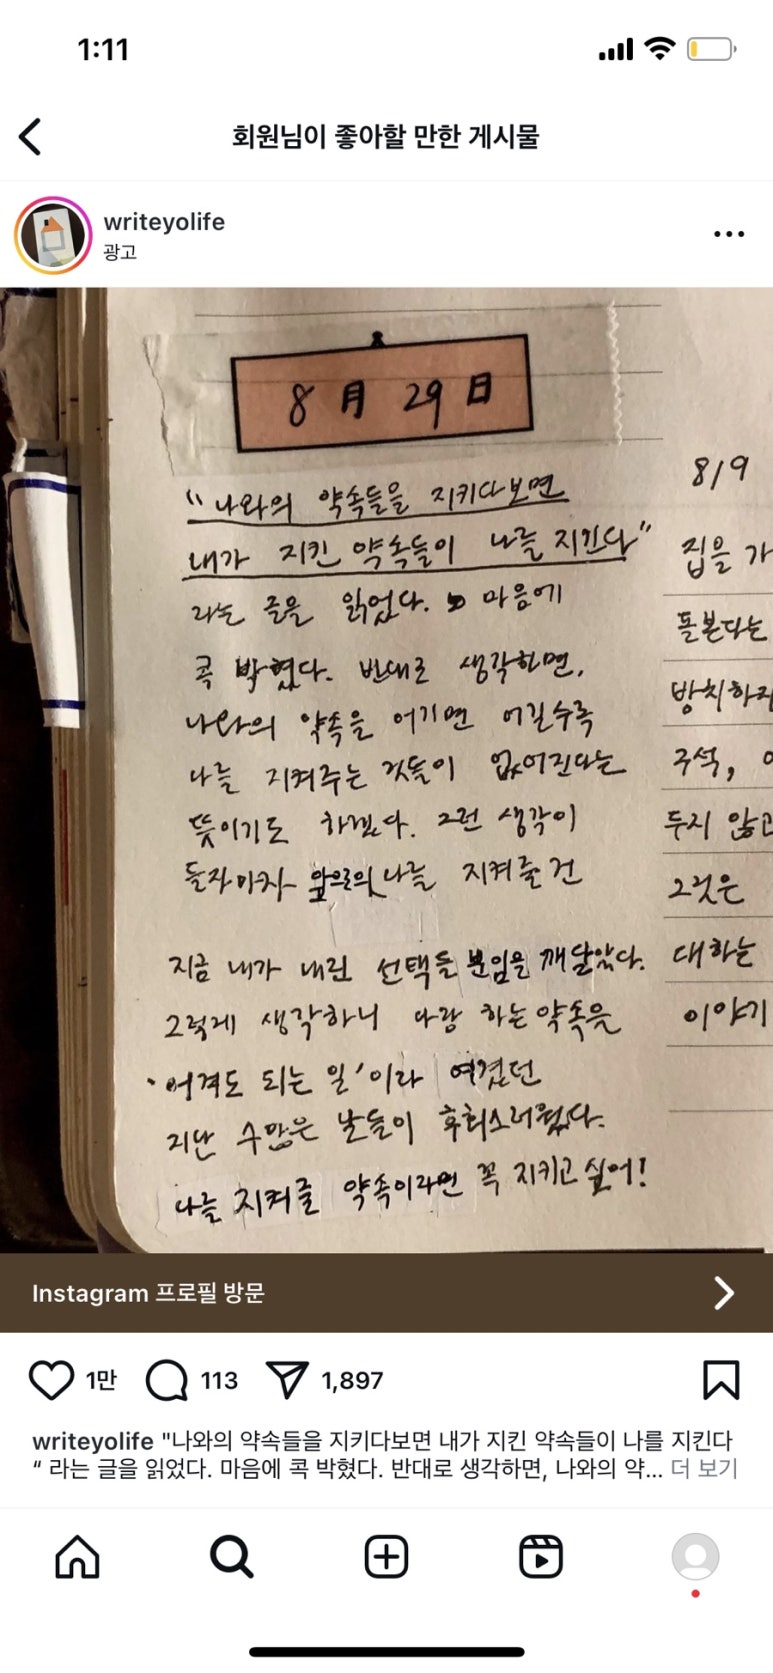 1:11
회원님이 좋아할 만한 게시물
writeyolife
광고
8月 29日
"나와의 약속들을 지키다보면
내가 지킨 약속들이 나를 지킨다"
라는 글을 읽었다. 마음에
콕 박혔다. 반대로 생각하면,
나와의 약속을 어기면 어길수록
나를 지켜주는 것들이 없어진다는
뜻이기도 하겠다. 그런 생각이
들자마자 앞으로의 나를 지켜줄 건
지금 내가 내린 선택들 뿐임을 깨달았다.
그렇게 생각하니 나랑 하는 약속을
'어겨도 되는 일'이라 여겼던
지난 수많은 날들이 후회스러웠다.
나를 지켜줄 약속이라면 꼭 지키고 싶어!
8/9
집을 가
돌본다는
방치하지
구석,
두지 않고
그것은
대하는
이야기
Instagram 프로필 방문
1만 113 1,897
writeyolife "나와의 약속들을 지키다보면 내가 지킨 약속들이 나를 지킨다
“ 라는 글을 읽었다. 마음에 콕 박혔다. 반대로 생각하면, 나와의 약... 더 보기